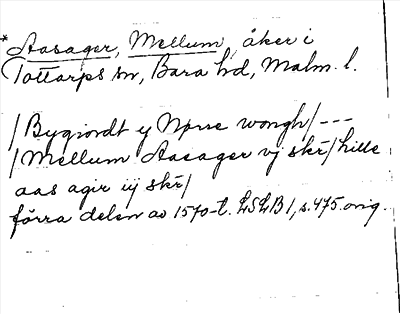 * Aasager, Mellum, åker i
Tottarps sn, Bara hd, Malm. l.
/Bygiordt ij Nørre wongh/---
/Mellum Aasager vj skr/ hille
aas agir iij skr/
förra delen av 1570-t. LSLB 1, s. 475. orig.